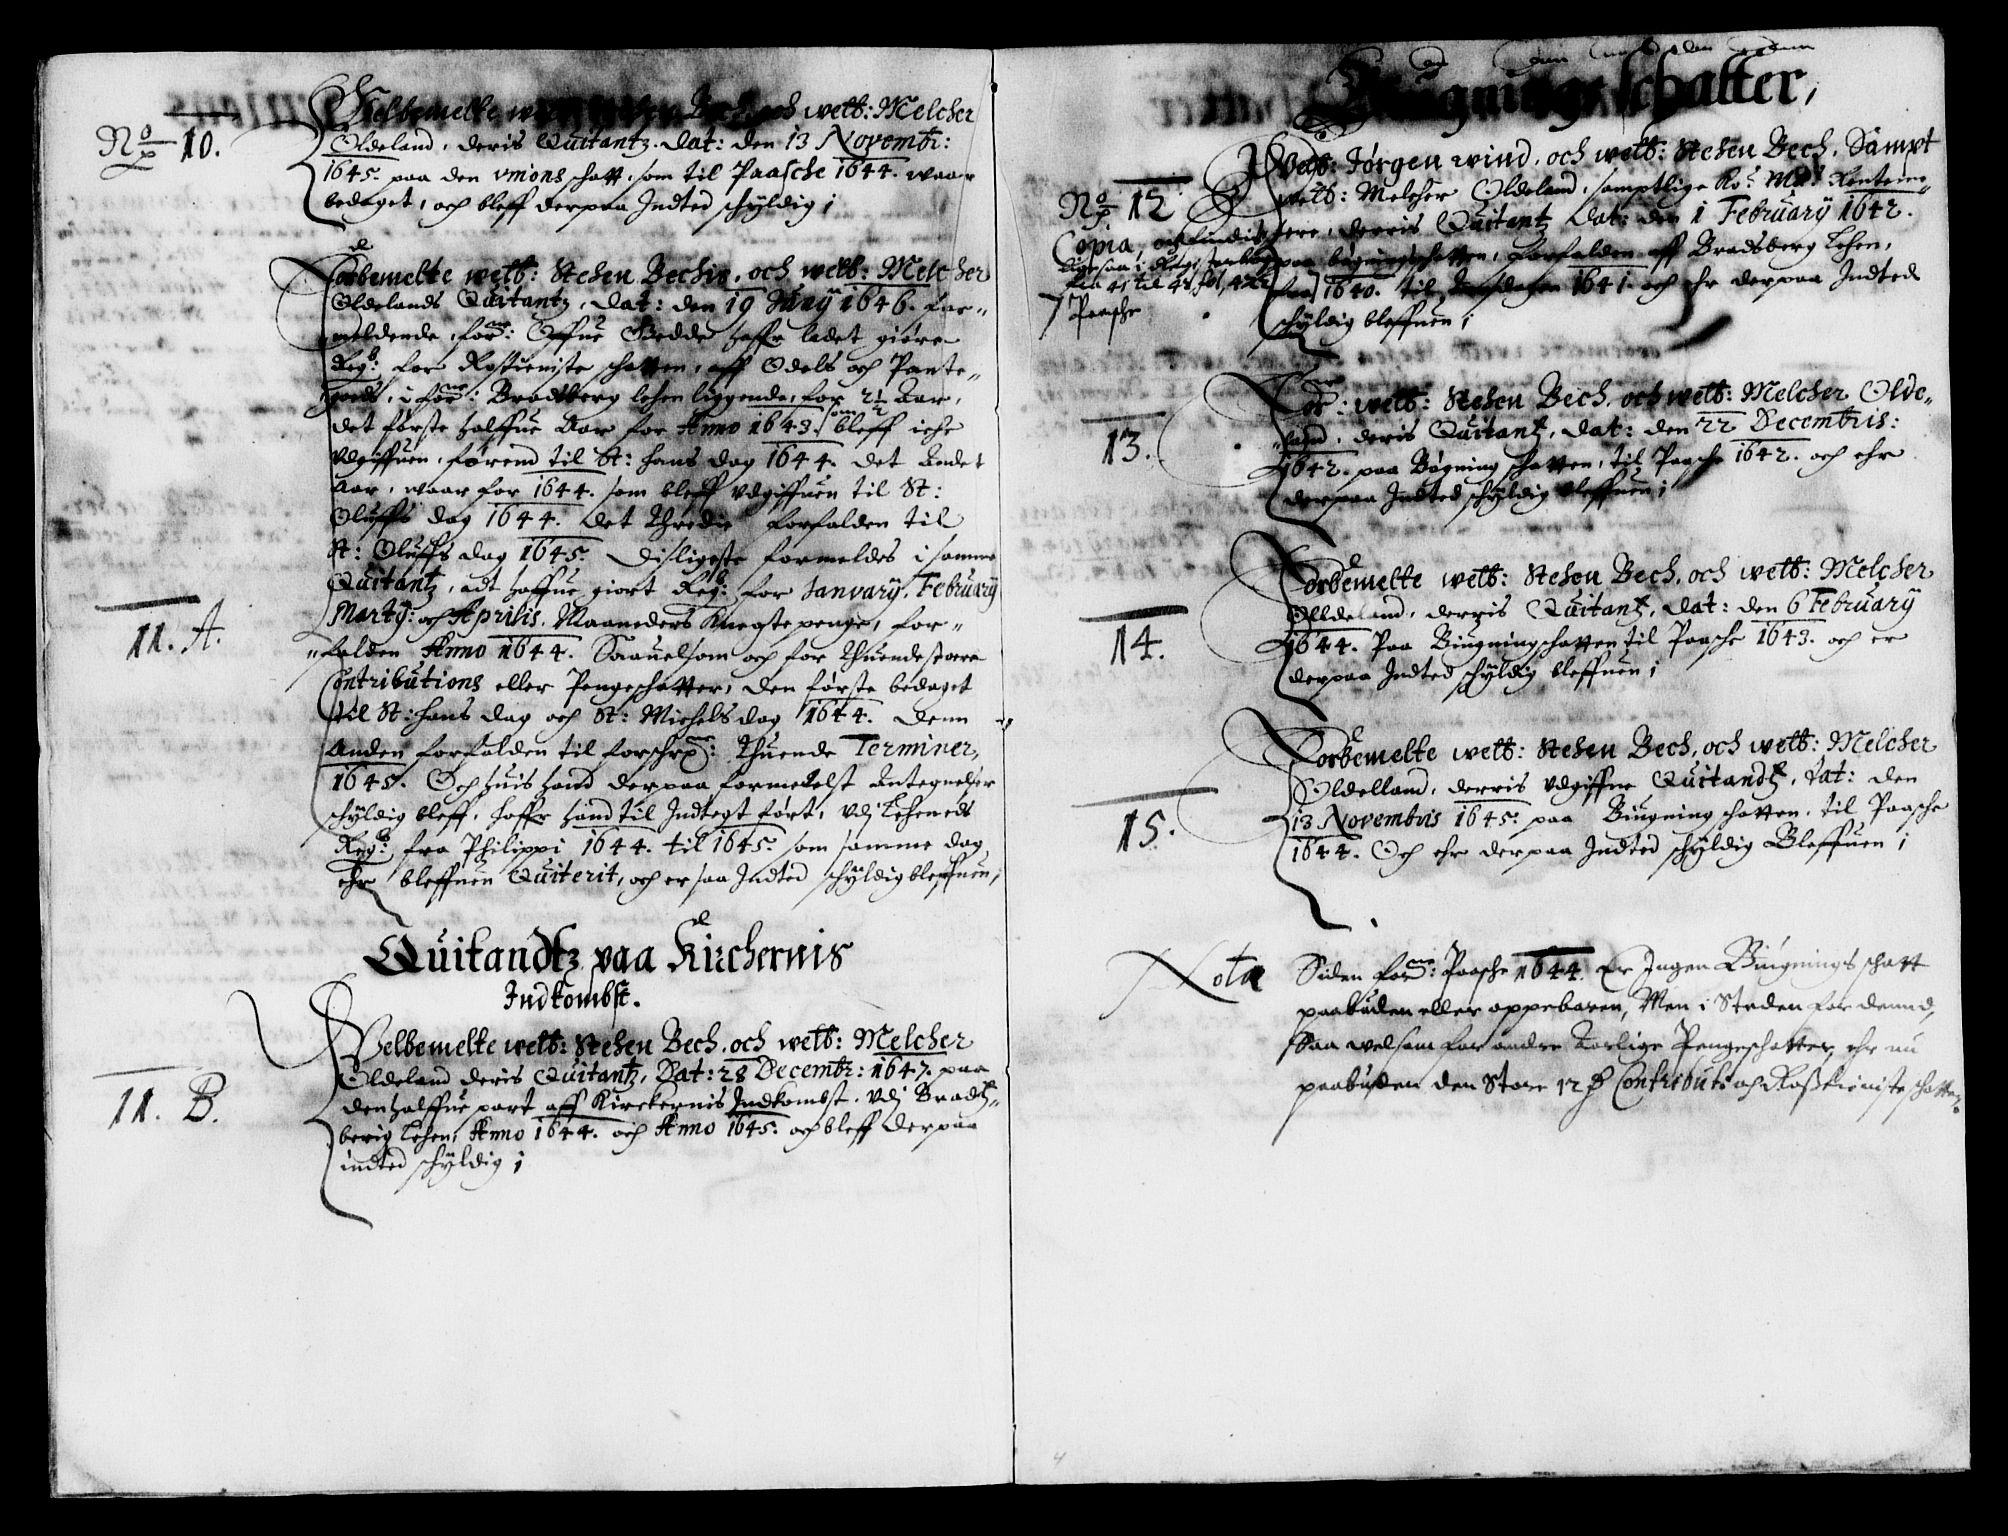 No 10.
Velbemelte welb: Stehen Bech, och welb: Melcher
Oldeland, deris Quitantz. Dat: den 13 Novembr:
1645. paa den vnions schatt, som til Paasche 1644. waar
bedaget, och bleff derpaa Indted schÿldig;
11. A.
Forbemelte welb: Stehen Bechis, och welb: Melcher
Oldelands Quitantz, dat: den 19 Junÿ 1646. for-
meldende, for.ne: Offue Gedde haffr ladet giøre
Regb: for Rostieniste schatten, aff Odels och Pante-
goeds, i for.ne: Bradtberg lehen liggende, for 2½ Aar,
det første halffue Aar for Anno 1643. som bleff iche
vdgiffuen, førend til St: hans dag 1644. det Andet
Aar, waar for 1644. som bleff vdgiffuen til St:
Oluffs dag 1644. det Thredie forfalden til
St: Oluffs dag 1645. disligeste formeldes i samme
Quitantz, adt haffue giort Regb: for Januarÿ, Februarÿ
Martÿ: och Aprilis, Maaneders Knegtepenge, for-
falden Anno 1644. Saauelsom och for Thuende store
Contributions eller Pengeschatter, den første bedaget
til St: hans dag och St: Michels dag 1644. denn
Anden forfalden til forschr.ne: Thuende Terminer,
1645. Och huis hand derpaa formedelst Antegnelser
schÿldig bleff, haffr hand til Indtegt ført, vdj Lehnedts
Regb: fra Philippi 1644. til 1645. som samme dag
ehr bleffuen Quiterit, och er saa Indted schÿldig bleffuen,
Quitandtz paa Kirchernis
Indkombst.
11. B.
Velbemelte welb: Stehen Bech, och welb: Melcher
Oldeland deris Quitantz, Dat: 28 Decembr: 1647. paa
den halffue part aff Kirckernis Indkombst, vdj Bradtz-
berig Lehen, Anno 1644. och Anno 1645. och bleff derpaa
indted schÿldig;
Bÿgnings schatter,
No 12
Copia
Paasche
Welb: Jørgen wind, och welb: Stehen Bech, Sampt
welb: Melcher Oldeland, samptlige Ko: Ma: Renteme-
stere, derris Quitantz Dat: den 1 Februarÿ 1642.
paa bÿgningschatten, forfalden aff Bradsberg Lehen,
fra 1640. til 1641. och ehr derpaa Indted
schÿldig bleffuen;
13.
For.ne: welb: Stehen Bech, och welb: Melcher Olde-
land, deris Quitantz, dat: den 22 Decembris:
1642. paa Bÿgning schatten, til Paasche 1642. och ehr
derpaa Indted schÿldig bleffuen;
14.
Forbemelte welb: Stehen Bech, och welb: Melcher
Olldeland, derris Quitantz, dat: den 6 Februarÿ
1644. Paa Biugningschatten til Paasche 1643. och er
derpaa Indted schÿldig bleffuen;
15.
Forbemelte welb: Stehen Bech, och welb: Melcher
Oldelland, derris vdgiffne Quitandtz, dat: den
13 Novembris 1645. paa Biugning schatten, til Paasche
1644. Och ehr derpaa Indted schÿldig Bleffuen;
Nota
Siden for.ne: Paasche 1644. Er Ingen Biugnings schatt
paabuden eller oppebaaren, Men i Steden for dennd,
Saa welsom for andre Aarlige Pengeschatter, ehr nu
paabuden den Store Contributi och Rostieniste schatter.
4